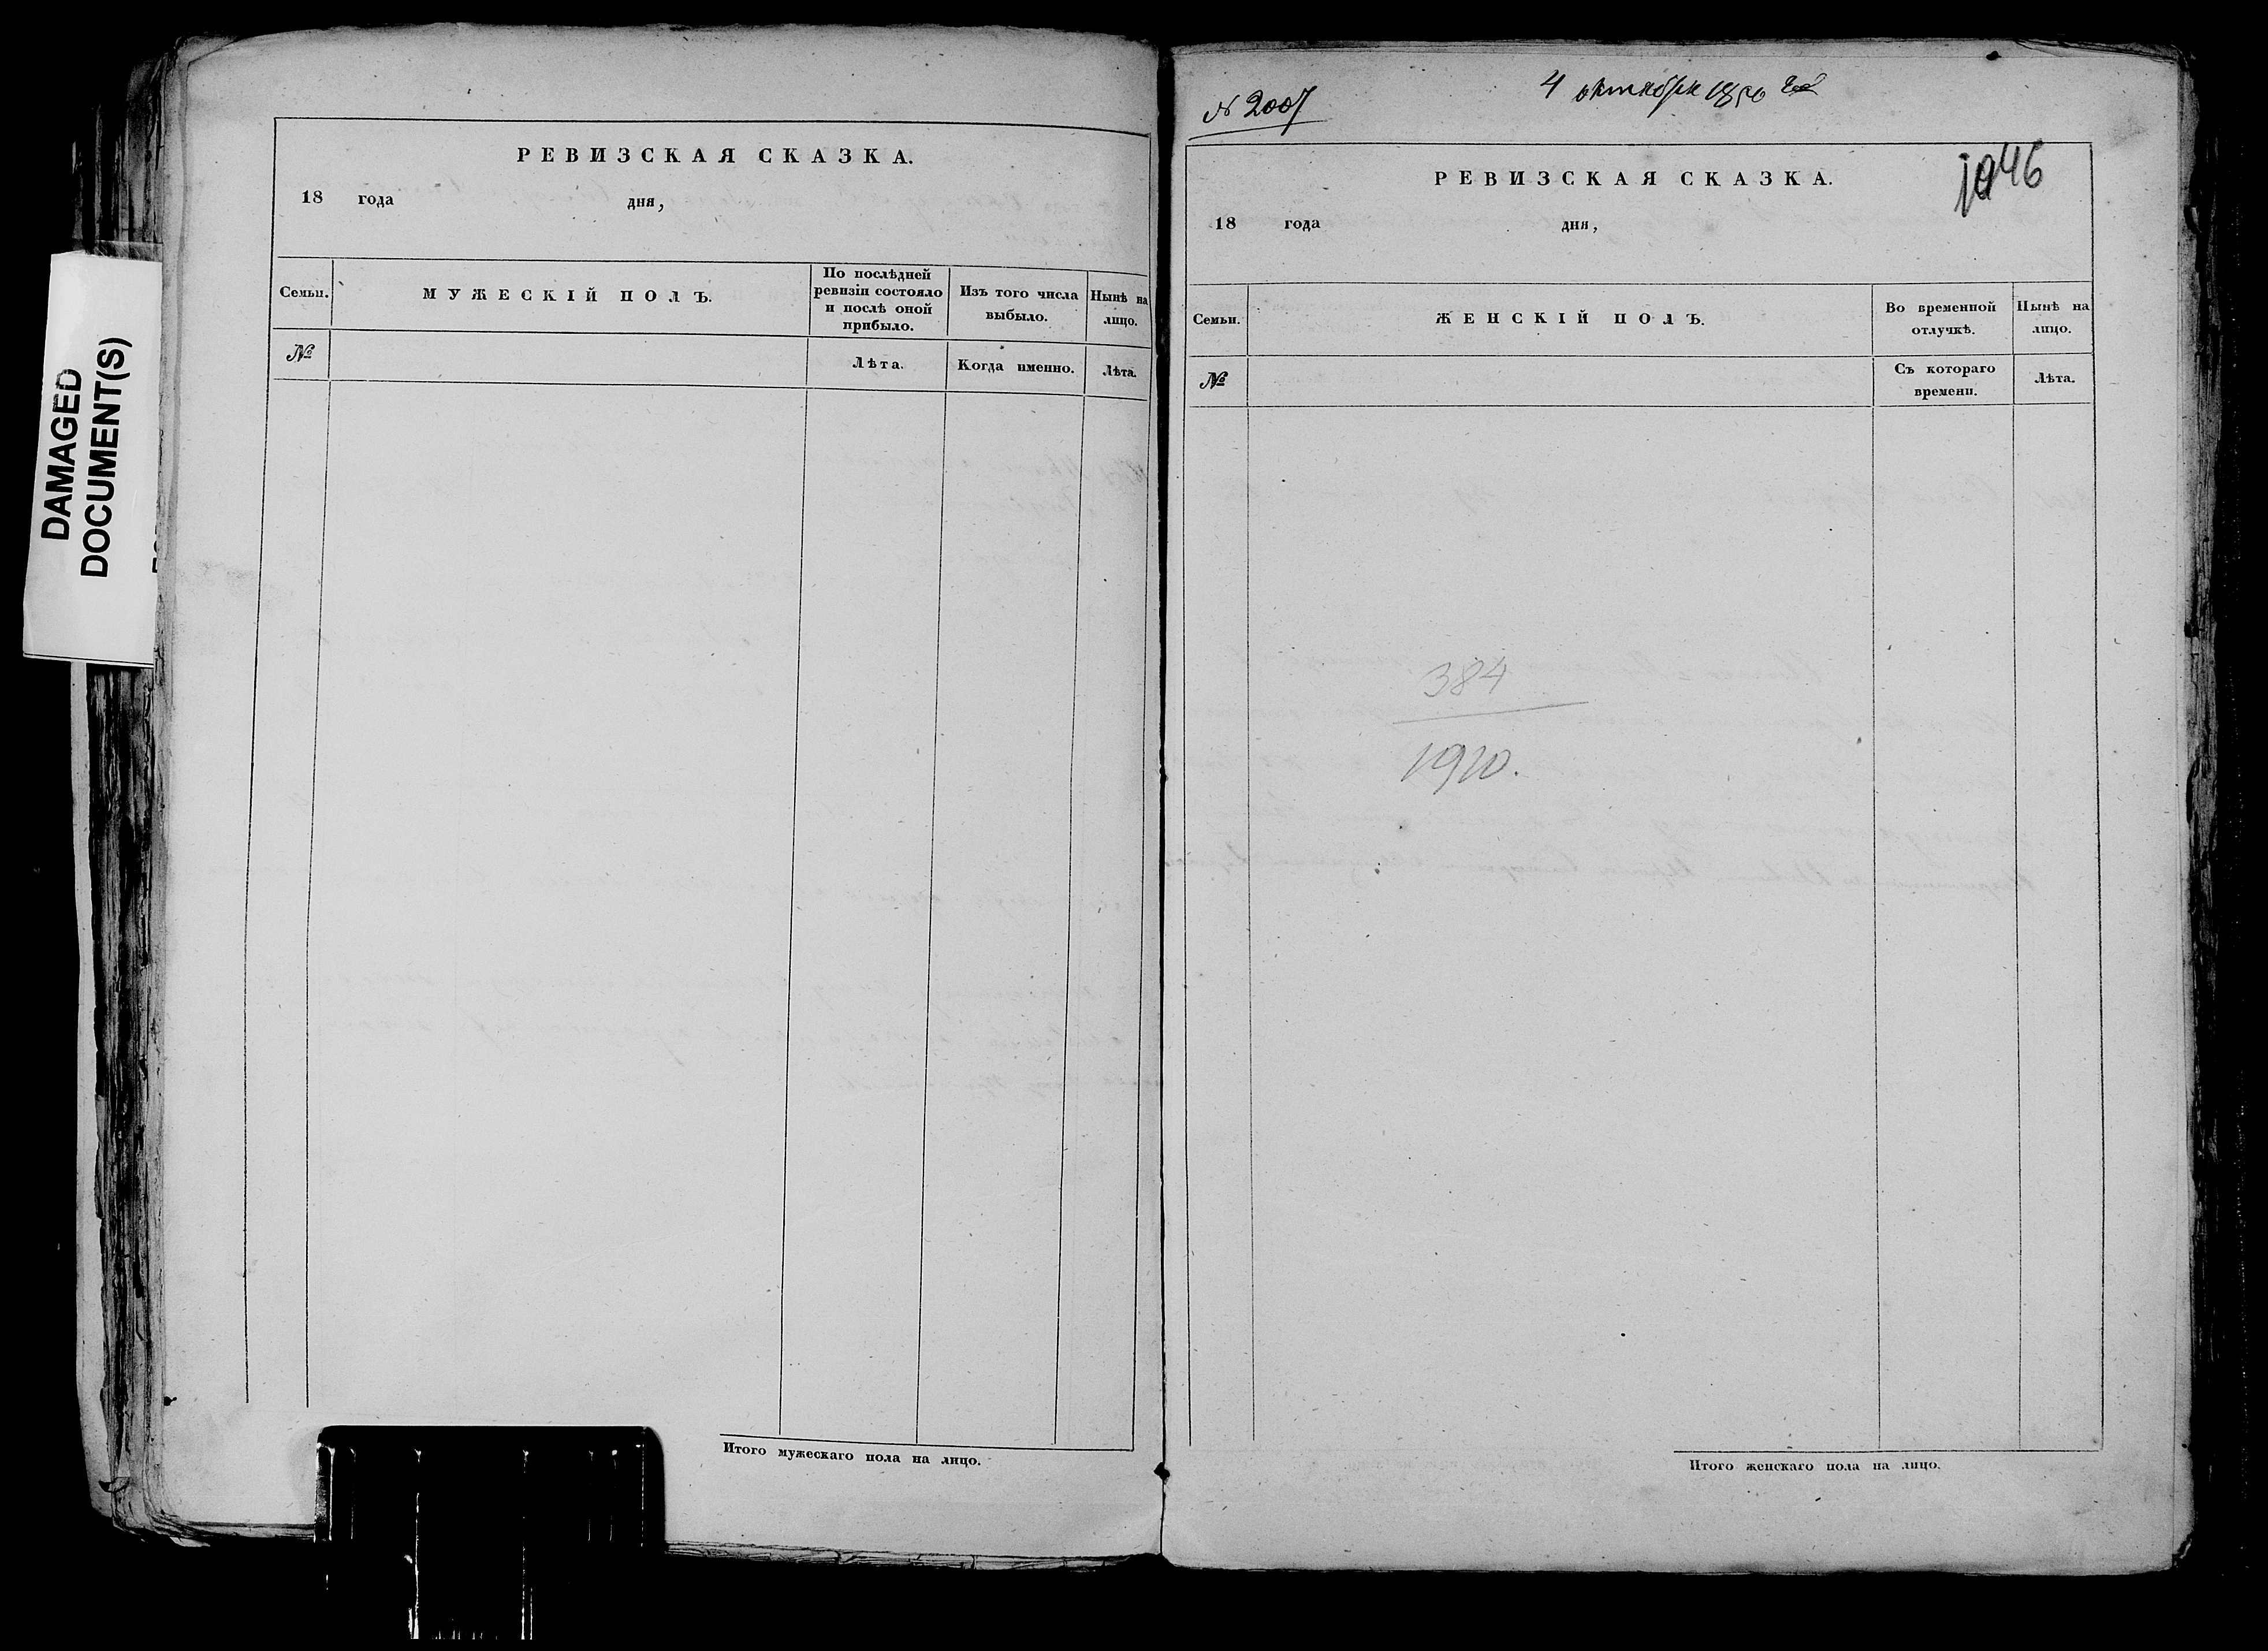 DAMAGED
DOCUMENT(S)
РЕВИЗСКАЯ СКАЗКА.
18 года дня,
Семьи. МУЖЕСКІЙ ПОЛЪ. По послѣдней ревизіи состояло и послѣ оной прибыло. Изъ того числа выбыло. Нынѣ на лицо.
№ Лѣта. Когда именно. Лѣта.
Итого мужескаго пола на лицо.
№ 2007
4 октября 1850
1046
РЕВИЗСКАЯ СКАЗКА.
18 года дня,
Семьи. ЖЕНСКІЙ ПОЛЪ. Во временной отлучкѣ. Нынѣ на лицо.
№ Съ котораго времени. Лѣта.
384
1910.
Итого женскаго пола на лицо.